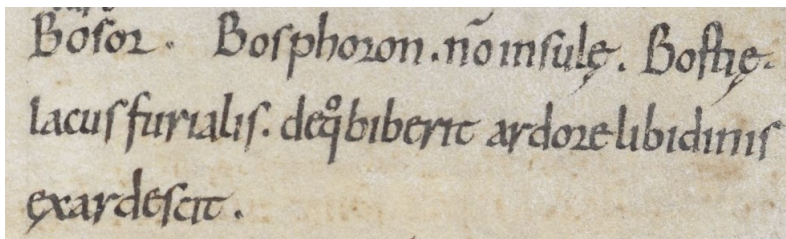 Bosor. Bosphoron. nō insulę. Bostię.
lacus furialis. deqͦ biberit ardore libidinis
exardescit.